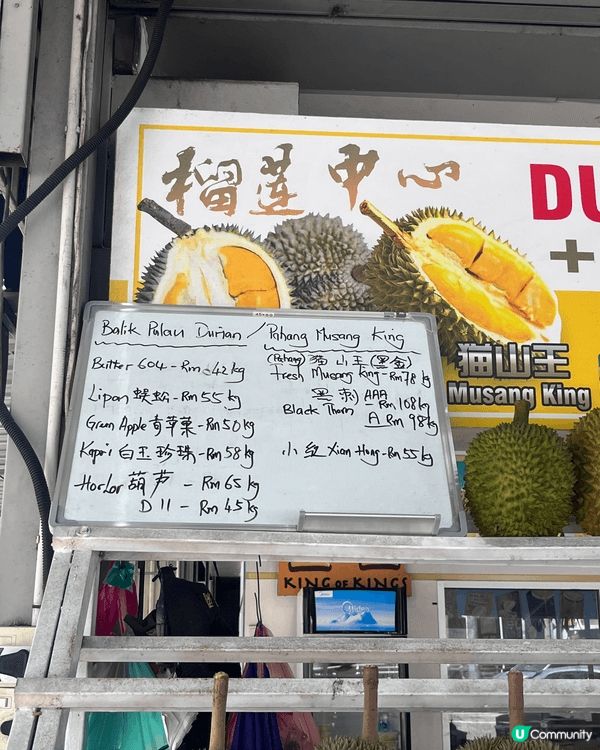 榴莲中心
DU
+
猫山王
Musang King
Balik Pulau Durian / Pahang Musang King
Bitter 604 - Rm 42 kg
Lipan 蜈蚣 - Rm 55 kg
Green Apple 青苹菓 - Rm 50 kg
Kapri 白玉珍珠 - Rm 58 kg
Horlor 葫芦 - Rm 65 kg
D 11 - Rm 45 kg
(Pahang) 猫山王 (黑金)
Fresh Musang King - Rm 78 kg
黑刺 AAA
Black Thorn Rm 108 kg
A Rm 98 kg
小红 Xian Hong - Rm 55 kg
KING OF KINGS
Midea
U Community